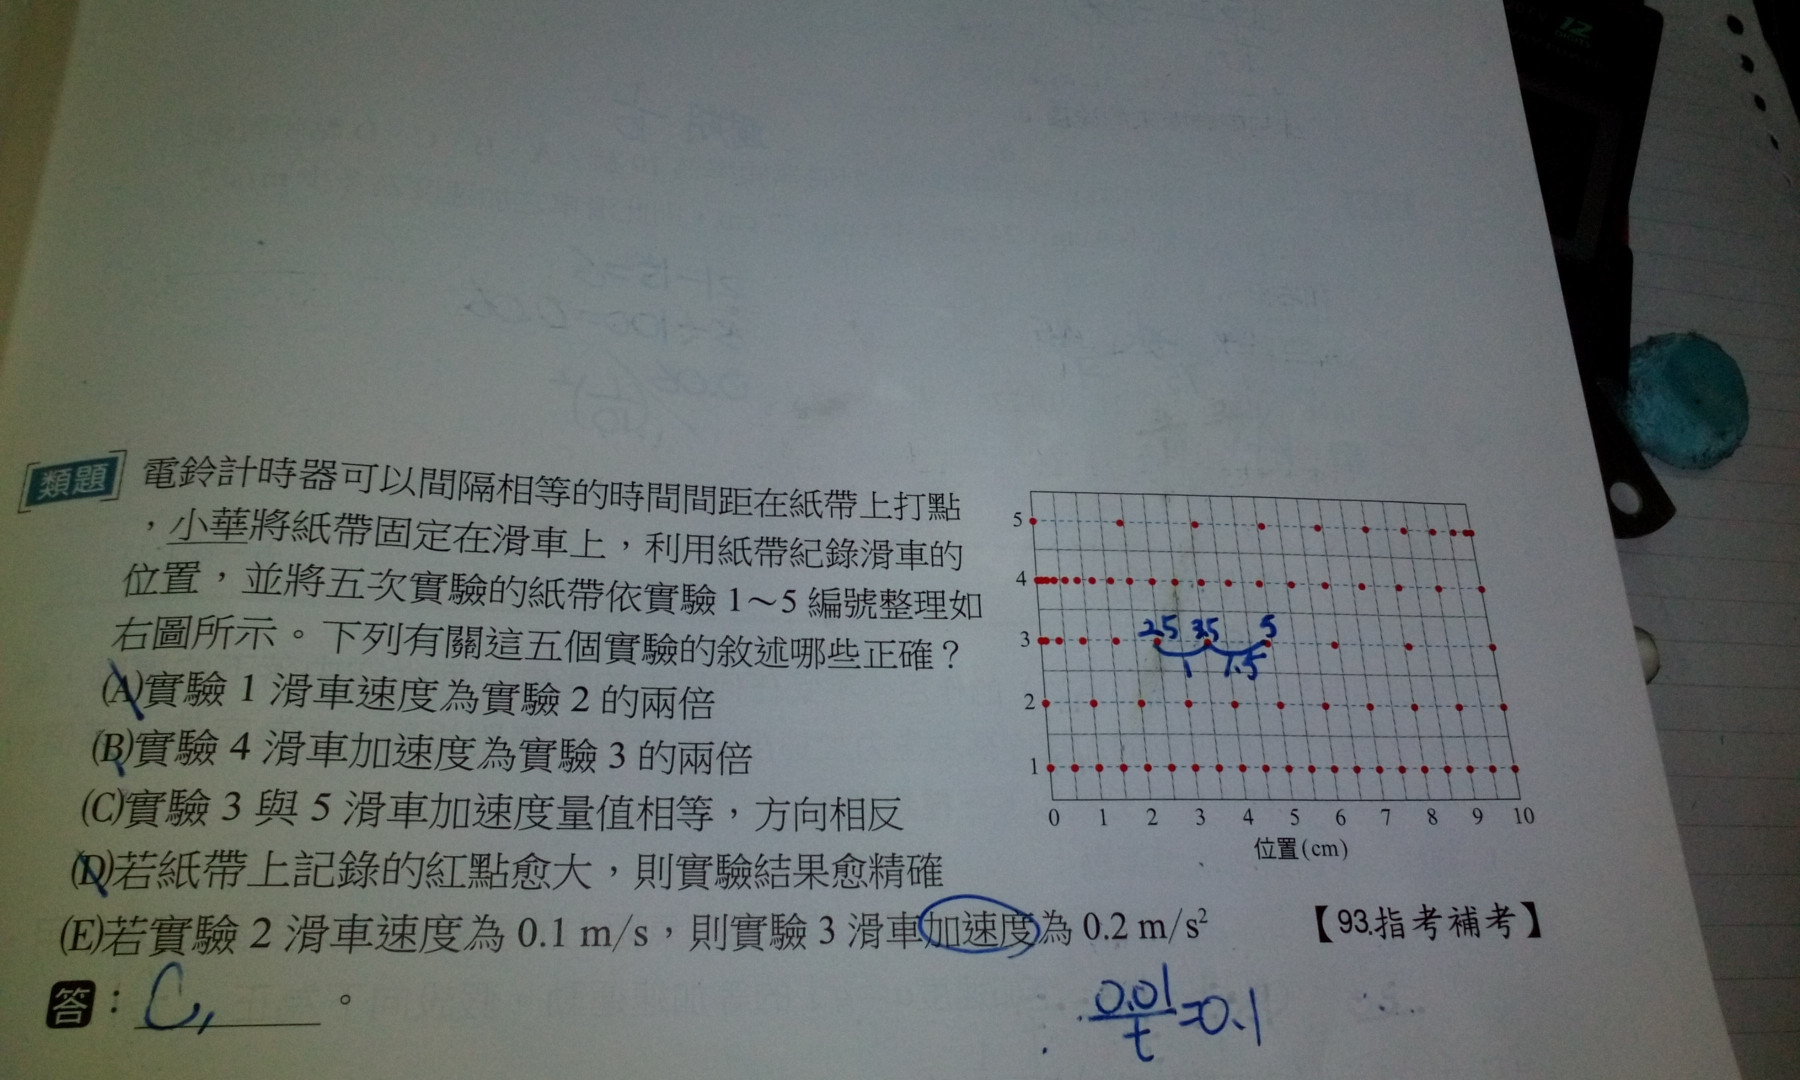 類題 電鈴計時器可以間隔相等的時間間距在紙帶上打點
，小華將紙帶固定在滑車上，利用紙帶紀錄滑車的
位置，並將五次實驗的紙帶依實驗1～5編號整理如
右圖所示。下列有關這五個實驗的敘述哪些正確？
(A)實驗 1 滑車速度為實驗 2 的兩倍
(B)實驗 4 滑車加速度為實驗 3 的兩倍
(C)實驗 3 與 5 滑車加速度量值相等，方向相反
(D)若紙帶上記錄的紅點愈大，則實驗結果愈精確
(E)若實驗 2 滑車速度為 0.1 m/s，則實驗 3 滑車加速度為 0.2 m/s² 【93.指考補考】
答：C, 。
5
4
3
2
1
2.5 3.5 5
1 1.5
0 1 2 3 4 5 6 7 8 9 10
位置(cm)
0.01/t=0.1
12